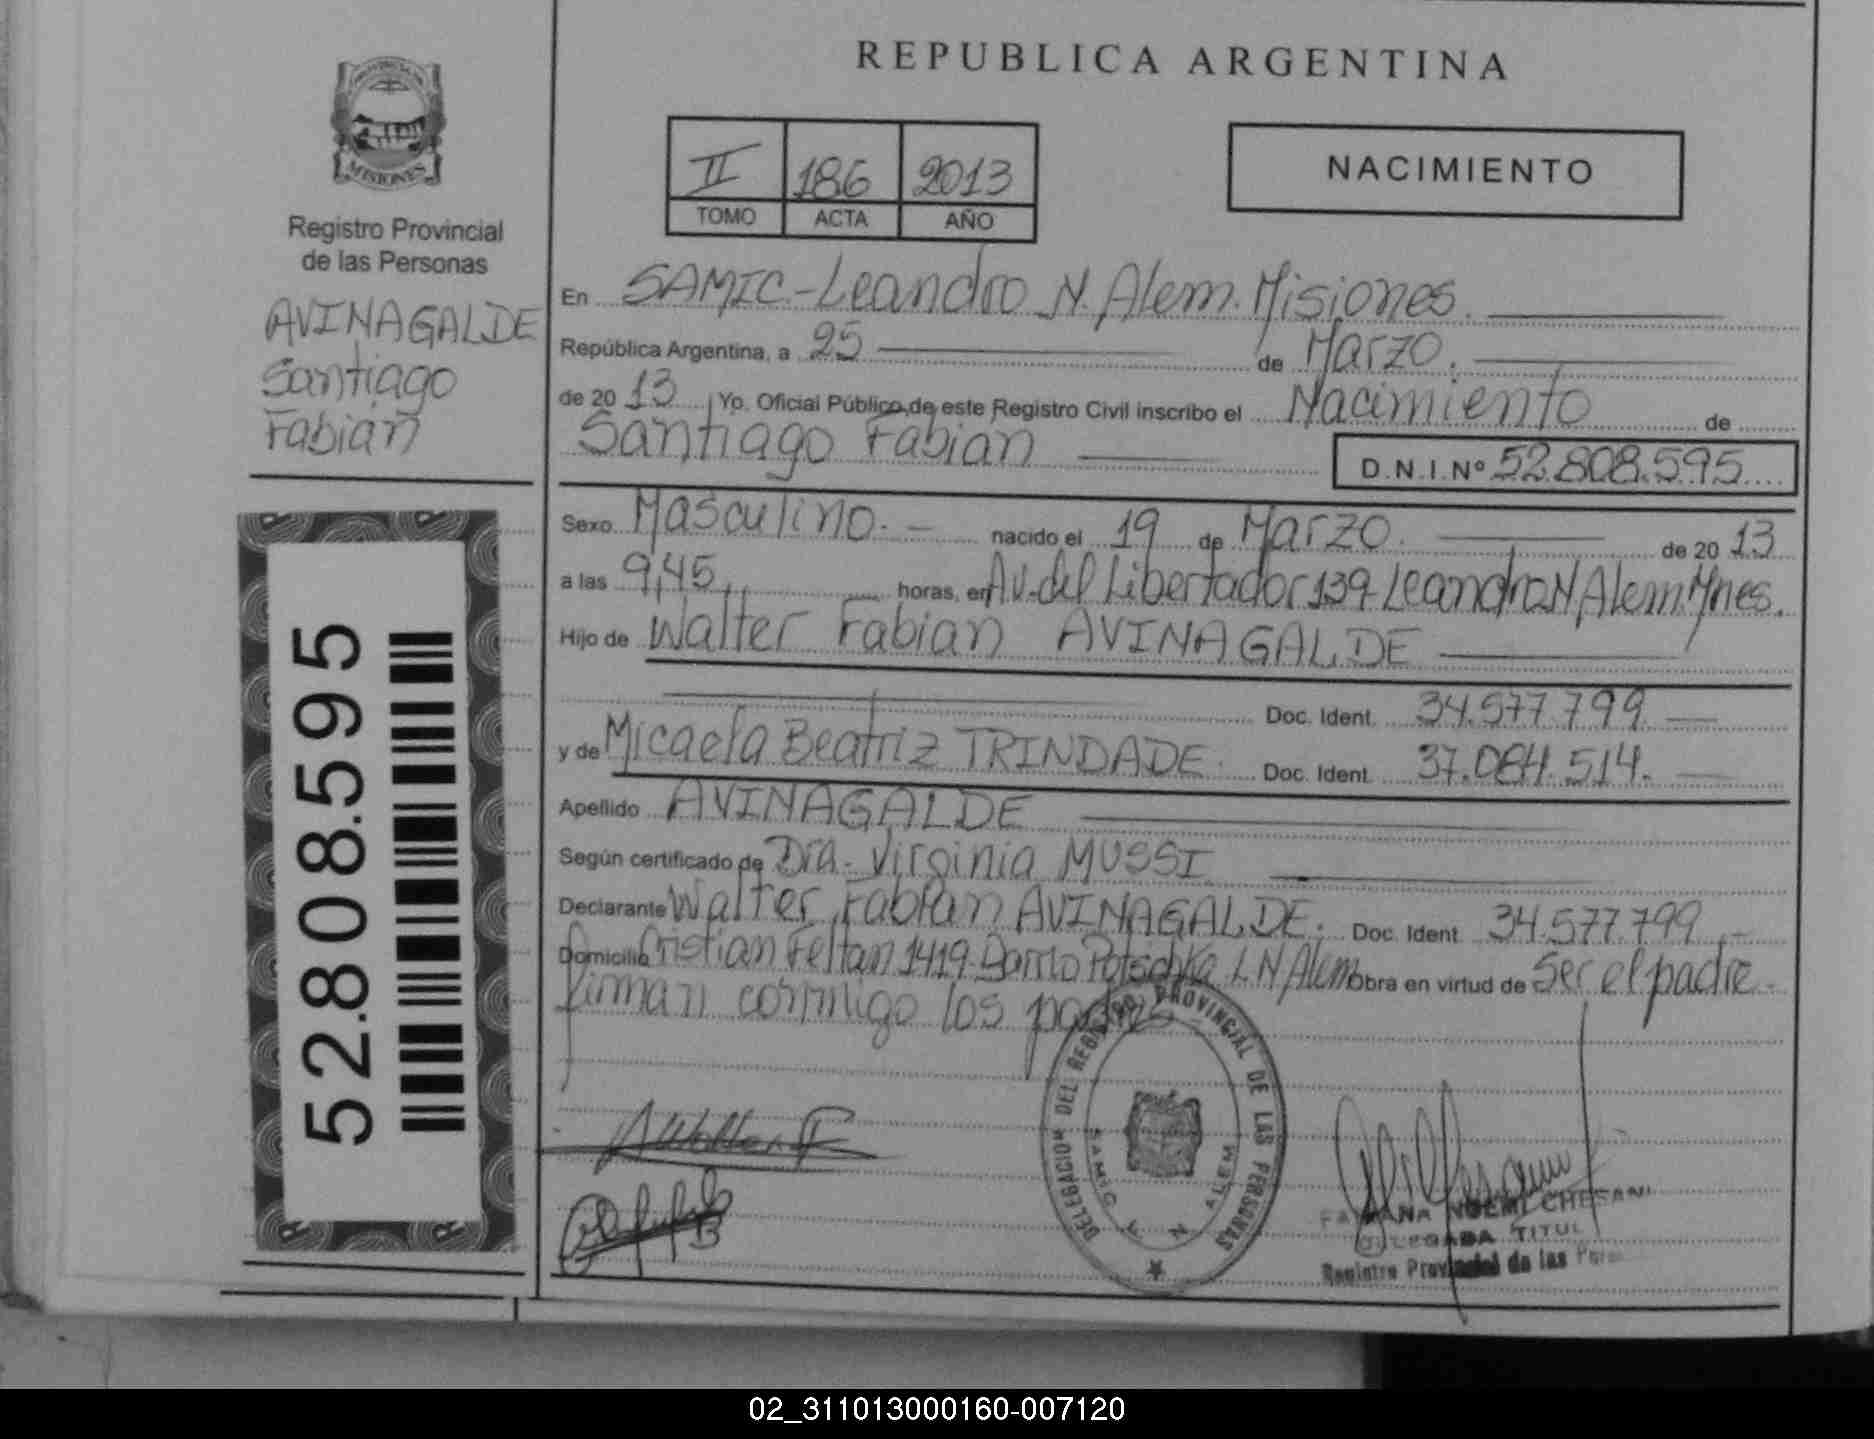 REPUBLICA ARGENTINA
PROVINCIA DE
MISIONES
Registro Provincial
de las Personas
AVINAGALDE
Santiago
Fabian
52.808.595
II 186 2013
TOMO ACTA AÑO
NACIMIENTO
En SAMIC-Leandro N. Alem. Misiones.
República Argentina, a 25 de Marzo.
de 20 13 Yo, Oficial Público de este Registro Civil inscribo el Nacimiento de
Santiago Fabian D.N.I. Nº 52.808.595
Sexo Masculino. nacido el 19 de Marzo. de 20 13
a las 9,45 horas, en Av. del Libertador 139-Leandro N Alem. Mnes.
Hijo de Walter Fabian AVINAGALDE
Doc. Ident. 34.577.799
y de Micaela Beatriz TRINDADE. Doc. Ident. 37.084.514.
Apellido AVINAGALDE
Según certificado de Dra. Virginia MUSSI
Declarante Walter Fabian AVINAGALDE. Doc. Ident. 34.577.799
Domicilio Cristian 1419 Barrio L.N Alem Obra en virtud de Ser el padre.
firman conmigo los padres
DELEGACION DEL REGISTRO PROVINCIAL DE LAS PERSONAS
SAMIC L. N. ALEM
NOEMI CHESANI
DELEGADA TITUL
Registro Provincial de las
02_311013000160-007120